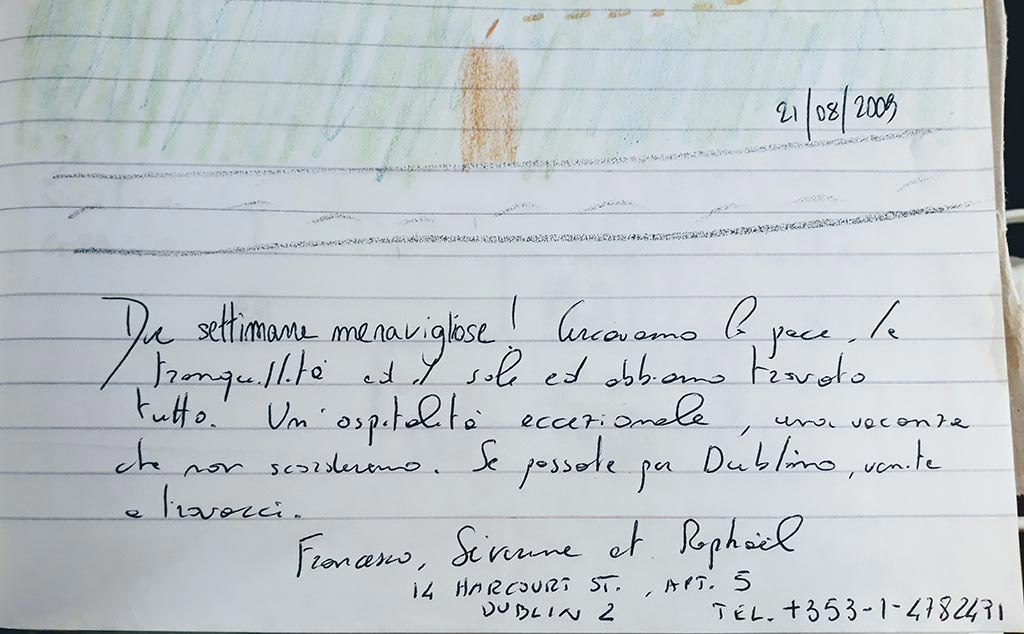 21/08/2009
Due settimane meravigliose! Cercavamo la pace, la
tranquillità ed il sole ed abbiamo trovato
tutto. Un'ospitalità eccezionale, una vacanza
che non scorderemo. Se passate per Dublino, venite
a trovarci.
Francesco, Séverine et Raphaël
14 HARCOURT ST., APT. 5
DUBLIN 2 TEL. +353-1-4782471